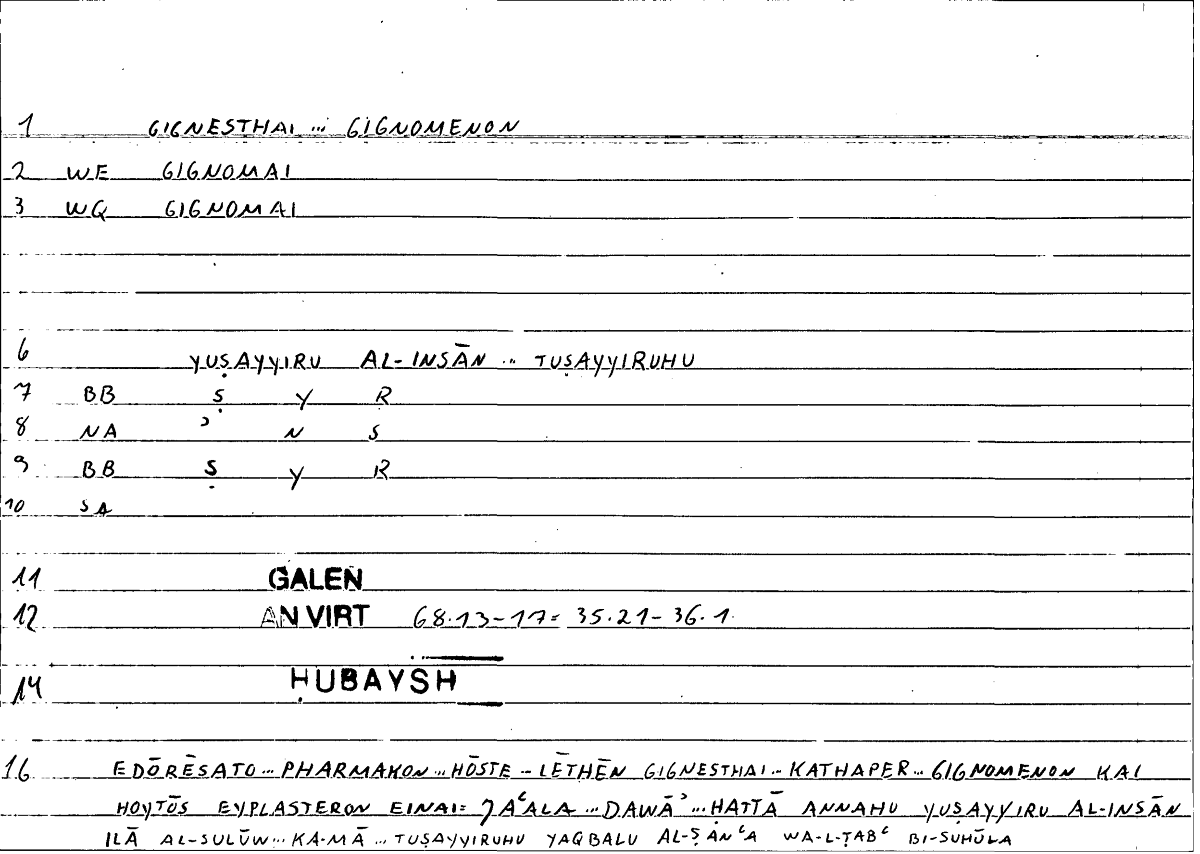 1 GIGNESTHAI ... GIGNOMENON
2 WE GIGNOMAI
3 WQ GIGNOMAI
6 YUṢAYYIRU AL-INSĀN ... TUṢAYYIRUHU
7 BB Ṣ Y R
8 NA ʾ N S
9 BB Ṣ Y R
10 SA
11 GALEN
12 AN VIRT 68.13-17= 35.21-36.1
14 ḤUBAYSH
16 EDŌRĒSATO... PHARMAKON... HŌSTE... LĒTHĒN GIGNESTHAI... KATHAPER... GIGNOMENON KAI
HOYTŌS EYPLASTERON EINAI= JAʿALA ... DAWĀʾ... ḤATTĀ ANNAHU YUṢAYYIRU AL-INSĀN
ILĀ AL-SULŪW... KA-MĀ ... TUṢAYYIRUHU YAQBALU AL-ṢANʿA WA-L-ṬABʿ BI-SUHŪLA